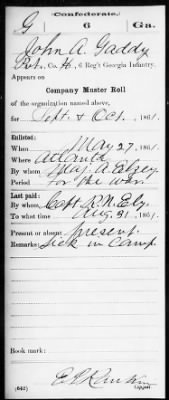 Confederate.
G 6 Ga.
John A. Gaddy
Pvt., Co. H, 6 Reg't Georgia Infantry.
Appears on
Company Muster Roll
of the organization named above,
for Sept. & Oct., 1861.
Enlisted:
When May 27, 1861.
Where Atlanta
By whom Maj. A. Elzey
Period for the war.
Last paid:
By whom Capt. R. N. Ely.
To what time Aug. 31, 1861.
Present or absent present.
Remarks: Sick in camp
Book mark:
(642) Copyist.